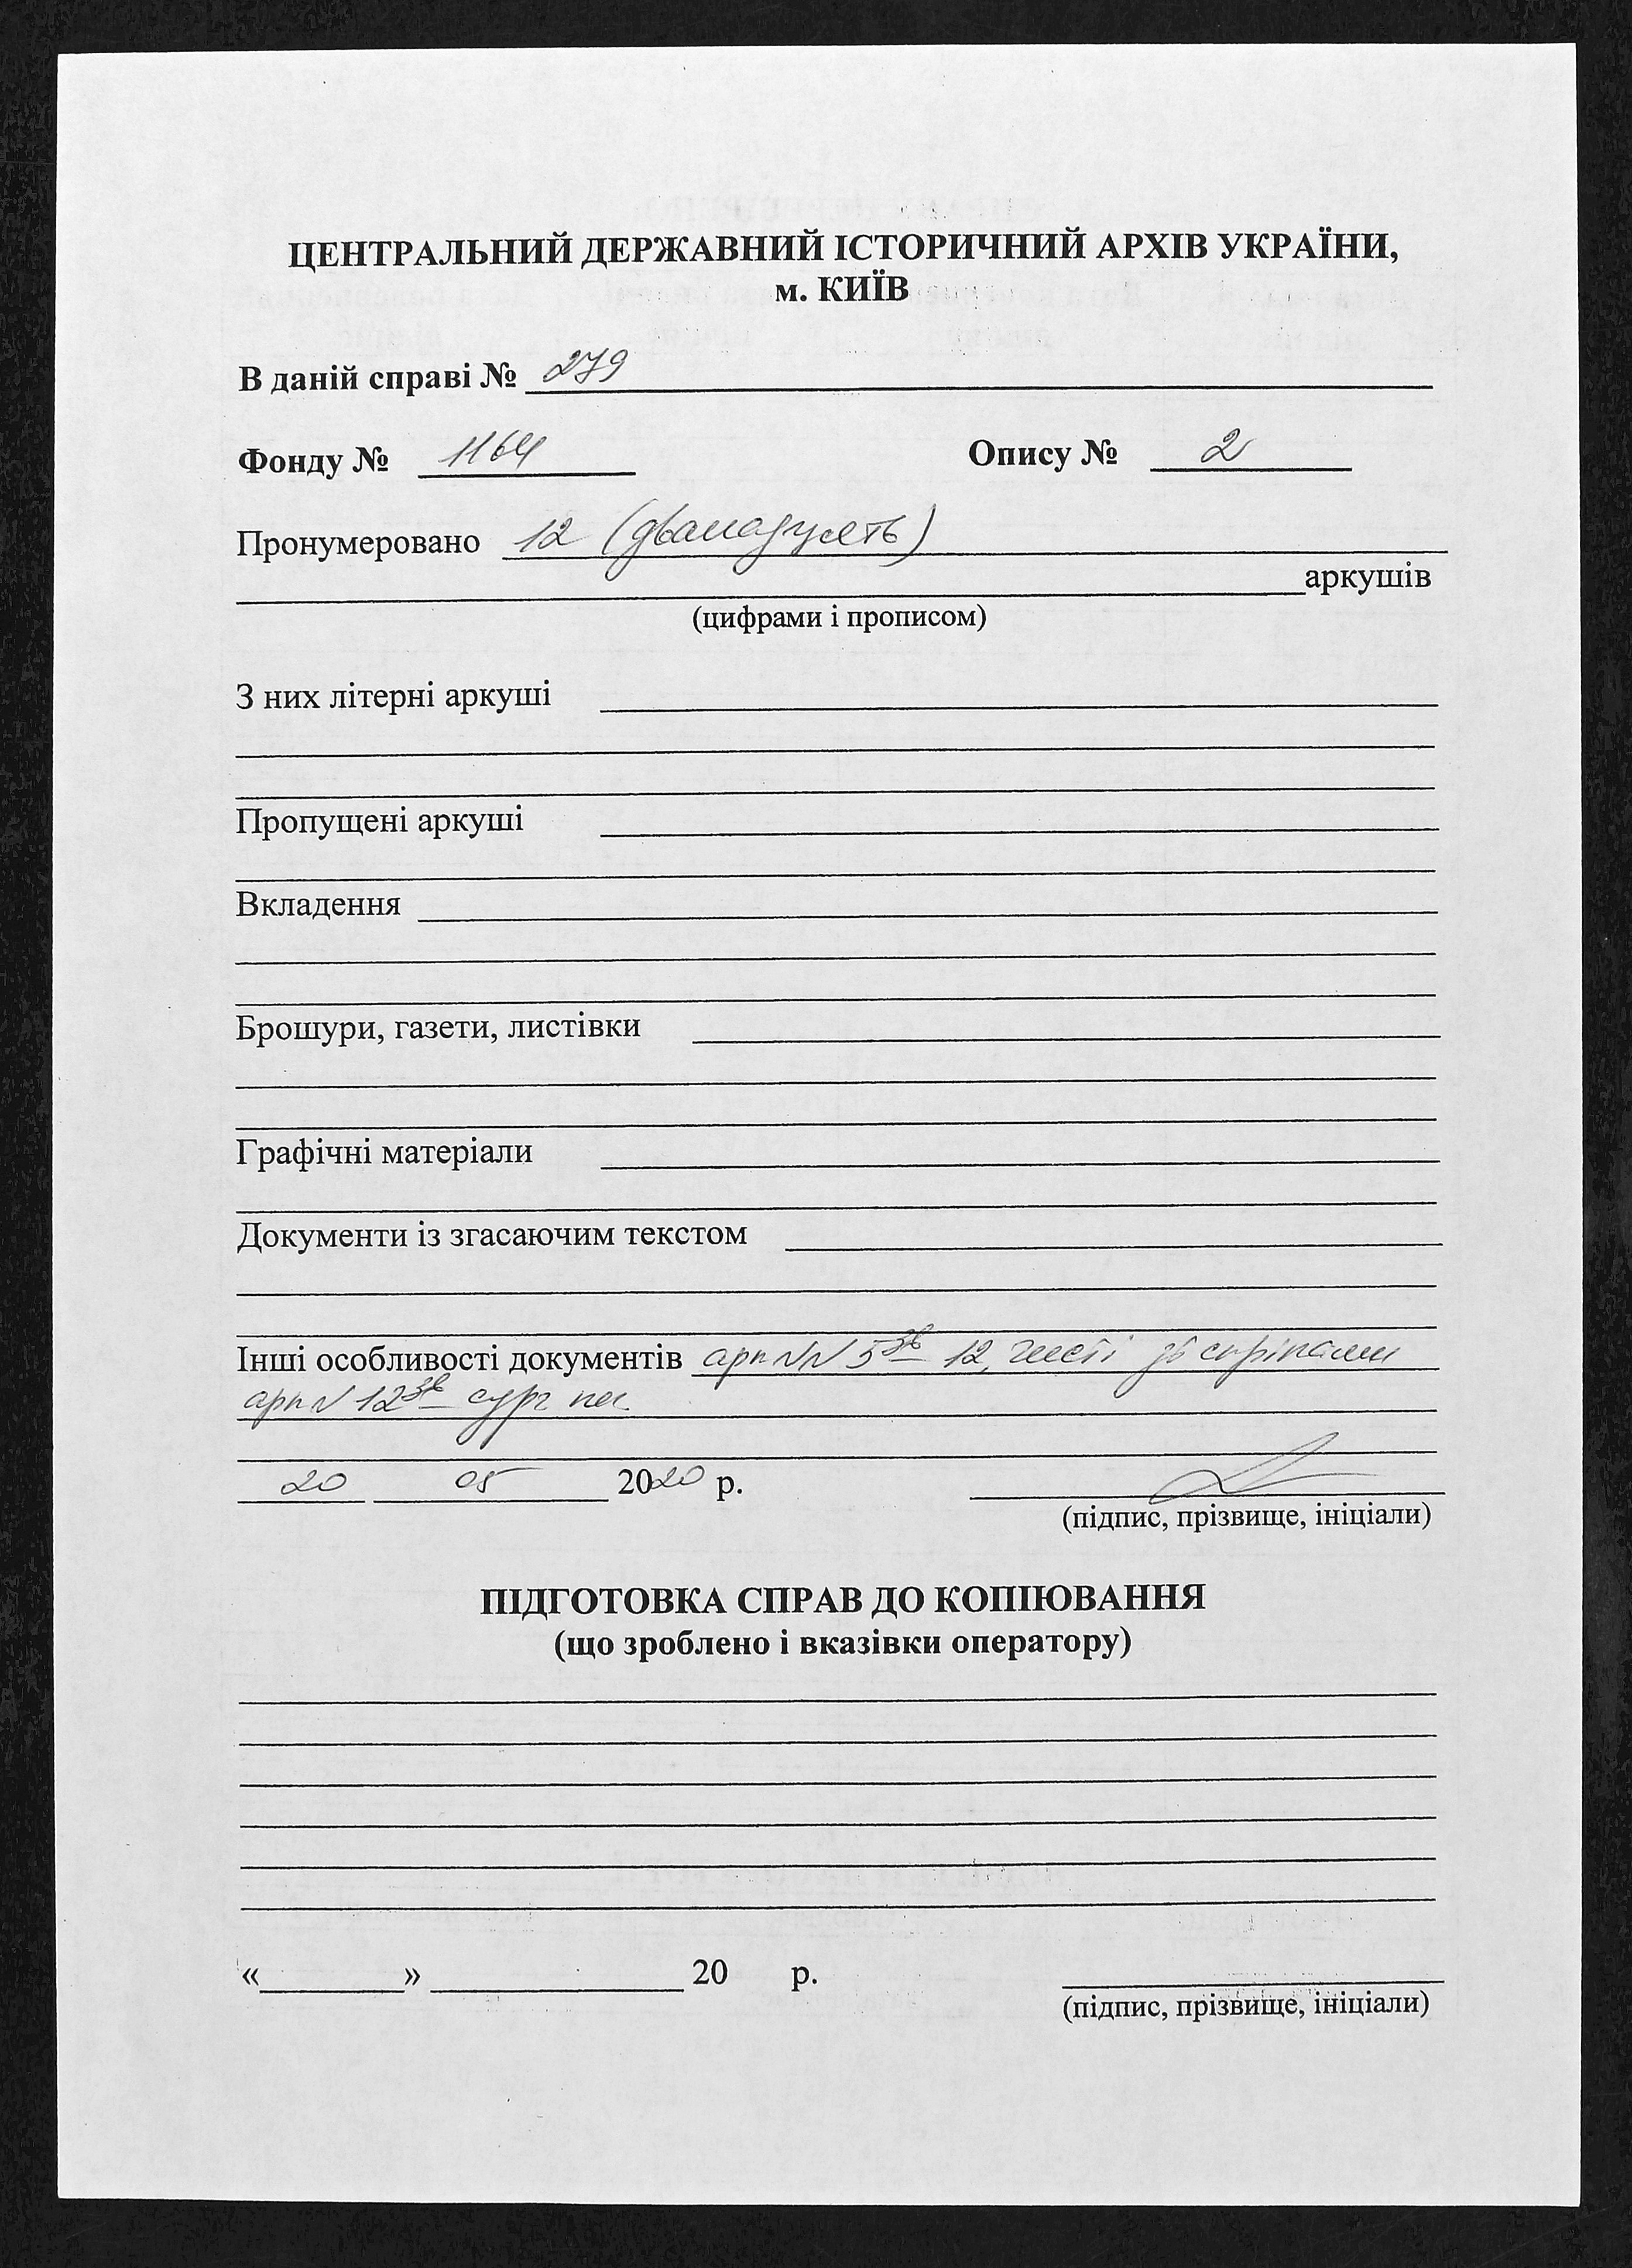 ЦЕНТРАЛЬНИЙ ДЕРЖАВНИЙ ІСТОРИЧНИЙ АРХІВ УКРАЇНИ,
м. КИЇВ
В даній справі № 279
Фонду № 1164 Опису № 2
Пронумеровано 12 (дванадцять)
аркушів
(цифрами і прописом)
З них літерні аркуші
Пропущені аркуші
Вкладення
Брошури, газети, листівки
Графічні матеріали
Документи із згасаючим текстом
Інші особливості документів арк NN 5зв 12, чисті зі скріпами
арк N 12зв сург печ.
20 05 2020 р.
(підпис, прізвище, ініціали)
ПІДГОТОВКА СПРАВ ДО КОПІЮВАННЯ
(що зроблено і вказівки оператору)
«________» ____________ 20 р.
(підпис, прізвище, ініціали)